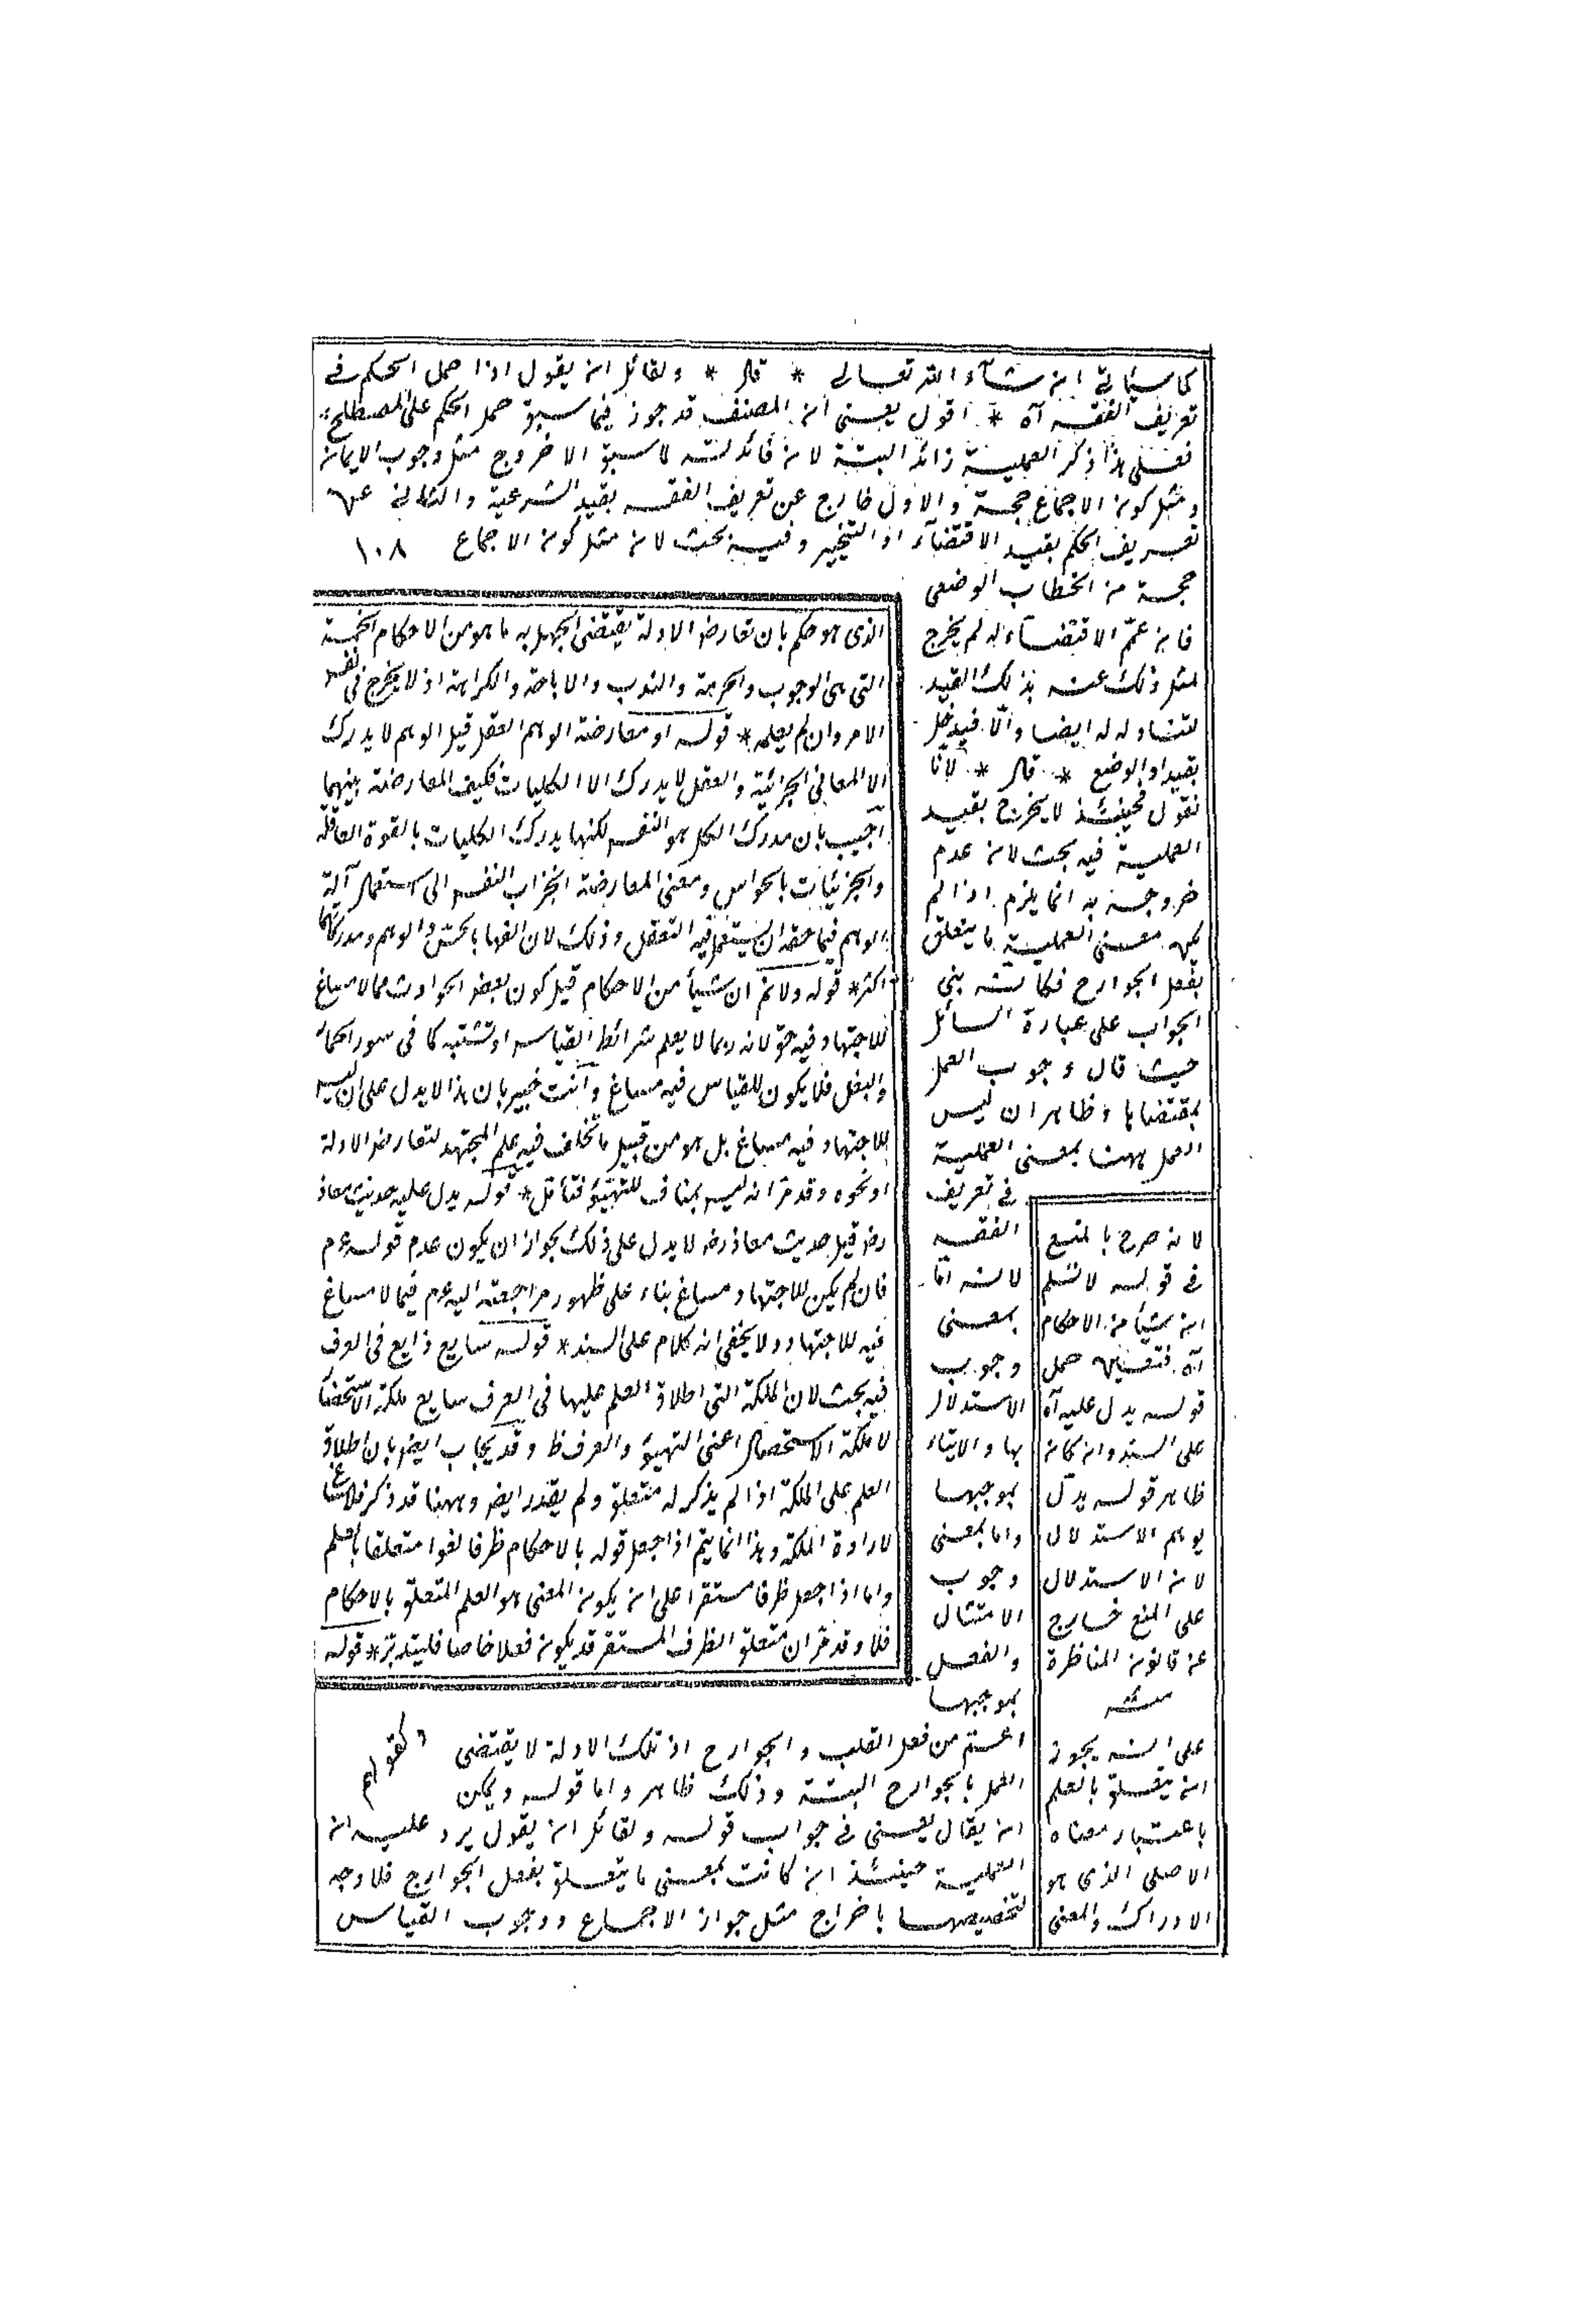 كما سيأتى ان شآء الله تعالى * قال * ولقائل ان يقول اذا حمل الحكم فى
تعريف الفقه آه * اقول يعنى ان المصنف قد جوز فيما سبق حمل الحكم على المصطلح
فعلى هذا ذكر العملية زائد البتة لان فائدته لا سبق الا خروج مثل وجوب الايمان
ومثل كون الاجماع حجة والاول خارج عن تعريف الفقه بقيد الشرعية والثانى عن
تعريف الحكم بقيد الاقتضآء او التخيير وفيه بحث لان مثل كون الاجماع ١٠٨
حجة من الخطاب الوضعى
فان عمّ الاقتضآء له لم يخرج
مثل ذلك عنه بذلك القيد
لتناوله له ايضا والّا فيدخل
بقيد او الوضع * قال * لانا
نقول فحينئذ لا يخرج بقيد
العملية فيه بحث لان عدم
خروجه به انما يلزم اذا لم
يكن معنى العملية ما يتعلق
بفعل الجوارح فكانه بنى
الجواب على عبارة السائل
حيث قال وجوب العمل
بمقتضاها وظاهر ان ليس
العمل ههنا بمعنى العملية
فى تعريف
الفقه
لانه امّا
بمعنى
وجوب
الاستدلال
بها والايتاء
بموجبها
واما بمعنى
وجوب
الامتثال
والفعل
بموجبها
اعم من فعل القلب والجوارح اذ تلك الادلة لا يقتضى
العمل بالجوارح البتة وذلك ظاهر واما قوله ويمكن
ان يقال يعنى فى جواب قوله ولقائل ان يقول يرد عليه ان
العملية حينئذ ان كانت بمعنى ما يتعلق بفعل الجوارح فلا وجه
لتخصيصها باخراج مثل جواز الاجماع ووجوب القياس
وكقولهم
الذى هو حكم بان تعارض الادلة يقتضى الجهل به ما هو من الاحكام الخمسة
التى هى الوجوب والحرمة والندب والاباحة والكراهة اذ لا يخرج فى نفس
الامر وان لم يعلمه * قوله او معارضة الوهم العقل قيل الوهم لا يدرك
الا المعانى الجزئية والعقل لا يدرك الا الكليات فكيف المعارضة بينهما
اجيب بان مدرك الكل هو النفس لكنها يدرك الكليات بالقوة العاقلة
والجزئيات بالحواس ومعنى المعارضة انجذاب النفس الى استعمال آلة
الوهم فيما حقه ان يستعمل فيه التعقل وذلك لان الفها بالحسّ والوهم ومدركاتهما
اكثر * قوله ولا نم ان شيأ من الاحكام قيل كون بعض الحوادث مما لا مساغ
للاجتهاد فيه حق لانه ربما لا يعلم شرائط القياس او تشتبه كما فى سور الحمار
والبغل فلا يكون للقياس فيه مساغ وانت خبير بان هذا لا يدل على ان ليس
للاجتهاد فيه مساغ بل هو من قبيل ما تخلف فيه علم المجتهد لتعارض الادلة
او نحوه وقد مرّ انه ليس بمناف للتهيّؤ فتأمل * قوله يدل عليه حديث معاذ
رض قيل حديث معاذ رض لا يدل على ذلك لجواز ان يكون عدم قوله عم
فان لم يكن للاجتهاد مساغ بناء على ظهور مراجعته اليه عم فيما لا مساغ
فيه للاجتهاد ولا يخفى انه كلام على السند * قوله سايع ذايع فى العرف
فيه بحث لان الملكة التى اطلاق العلم عليها فى العرف سايع ملكة الاستحضار
لا ملكة الاستحصال اعنى التهيؤ والعرف ظ وقد يجاب ايض بان اطلاق
العلم على الملكة اذا لم يذكر له متعلق ولم يقدر ايض وههنا قد ذكر فلا مساغ
لارادة الملكة وهذا انما يتم اذا جعل قوله بالاحكام ظرفا لغوا متعلقا بالعلم
واما اذا جعل ظرفا مستقرا على ان يكون المعنى هو العلم المتعلق بالاحكام
فلا وقد مرّ ان متعلق الظرف المستقر قد يكون فعلا خاصا فليتدبّر * قوله
لانه صرح بالمنع
فى قوله لا نسلم
ان شيأ من الاحكام
آه فتعين حمل
قوله يدل عليه آه
على السند وان كان
ظاهر قوله يدل
يوهم الاستدلال
لان الاستدلال
على المنع خارج
عن قانون المناظرة
منه
على انه يجوز
ان يتعلق بالعلم
باعتبار معناه
الاصلى الذى هو
الادراك والمعنى